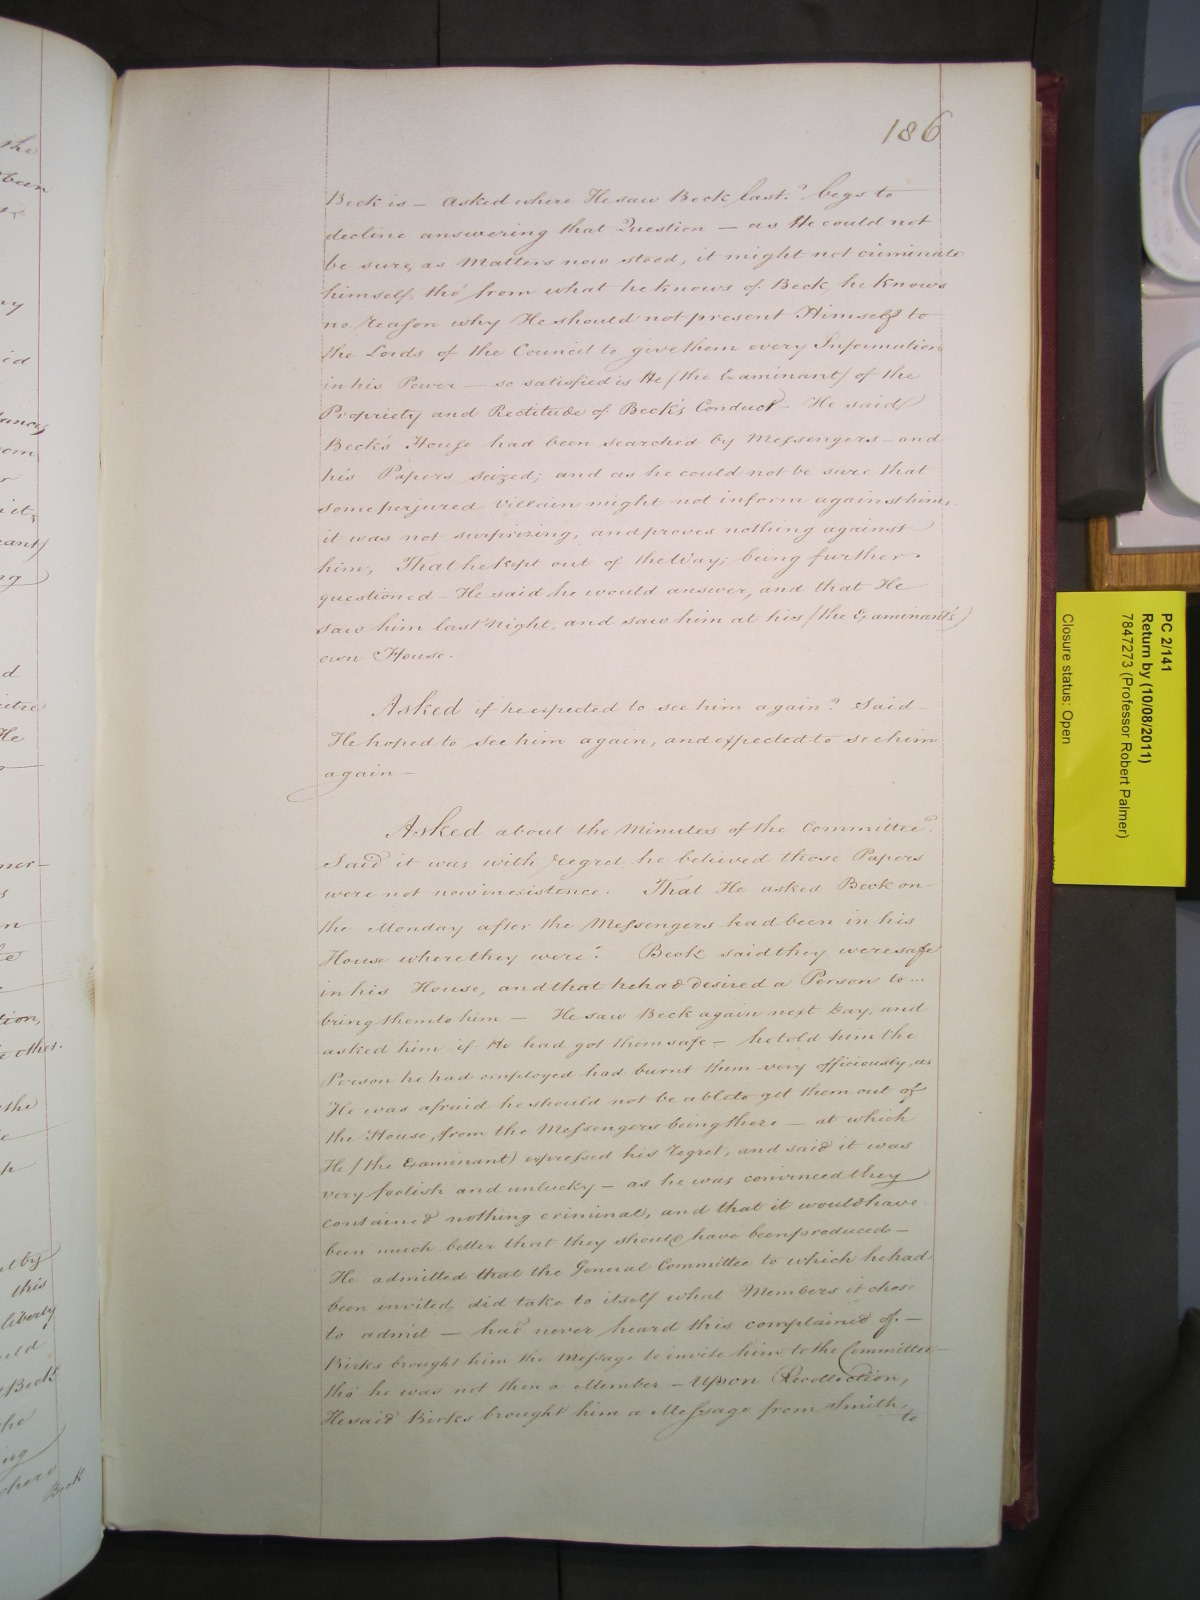 186
Beck is – asked where He saw Beck last? begs to
decline answering that Question – as He could not
be sure, as Matters now stood, it might not criminate
himself, tho' from what he knows of Beck, he knows
no reason why He should not present Himself to
the Lords of the Council to give them every Information
in his Power – so satisfied is He (the Examinant) of the
Propriety and Rectitude of Beck's Conduct – He said
Beck's House had been searched by Messengers – and
his Papers seized; and as he could not be sure that
some perjured Villain might not inform against him,
it was not surprizing, and proves nothing against
him, That he kept out of the Way; being further
questioned – He said he would answer, and that He
saw him last Night, and saw him at his (the Examinant's)
own House.
Asked if he expected to see him again? Said –
He hoped to see him again, and expected to see him
again –
Asked about the Minutes of the Committee?
Said it was with regret he believed those Papers
were not now in existence. That He asked Beck on
the Monday after the Messengers had been in his
House where they were? Beck said they were safe
in his House, and that he had desired a Person to ...
bring them to him – He saw Beck again next Day, and
asked him if He had got them safe – he told him the
Person he had employed had burnt them very officiously, as
He was afraid he should not be able to get them out of
the House, from the Messengers being there – at which
He (the Examinant) expressed his regret, and said it was
very foolish and unlucky – as he was convinced they
contained nothing criminal, and that it would have
been much better that they should have been produced –
He admitted that the General Committee to which he had
been invited, did take to itself what Members it chose
to admit – had never heard this complained of –
Birks brought him the Message to invite him to the Committee –
tho' he was not then a Member – Upon Recollection,
He said Birks brought him a Message from Smith,
to
the
been
ny
id
om
it,
ant)
ng
d
He
mer–
s
tion,
other.
the
this
liberty
Beck
ing
where
Beck
PC 2/141
Return by (10/08/2011)
7847273 (Professor Robert Palmer)
Closure status: Open